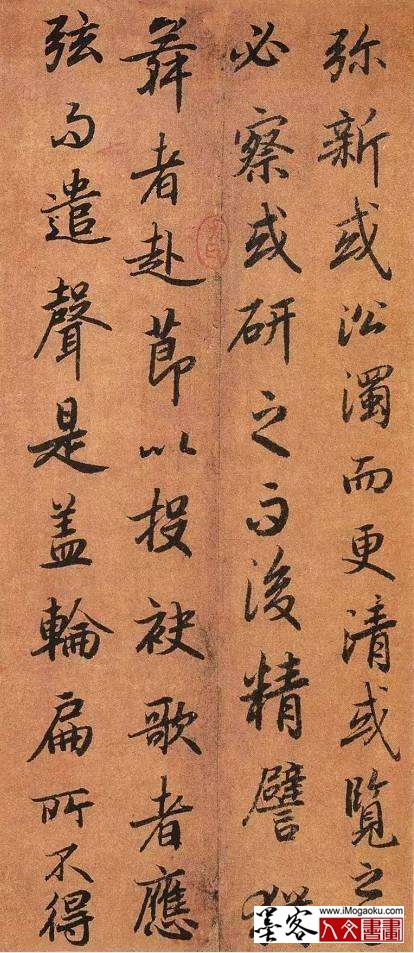 弥新或沿濁而更清或覽之
必察或研之而後精譬
舞者赴節以投袂歌者應
弦而遣聲是盖輪扁所不得
墨客 www.iMogaoku.com
人文書畫